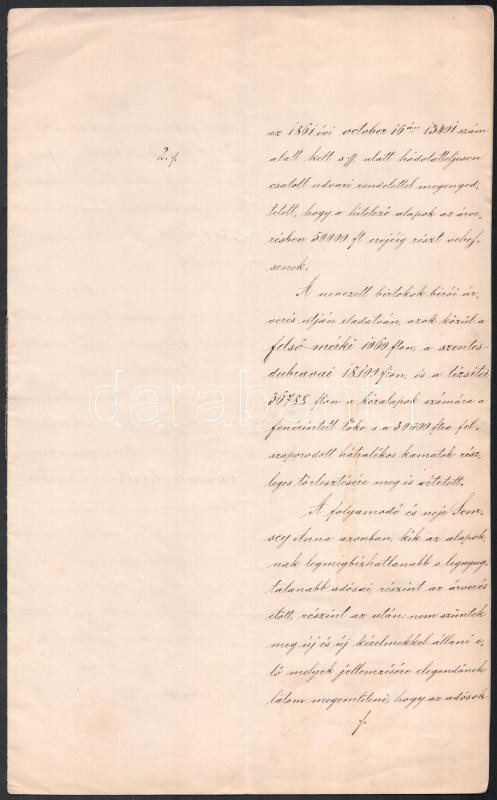 2. f.
az 1861 évi october 16án 13401 szám
alatt kelt s ./. alatt hódolatteljesen
csatolt udvari rendelettel megenged-
tetett, hogy a hitelező alapok az árve-
résben 50000 ft erejéig részt vehes-
senek.
A nevezett birtokok bírói ár-
verés utján eladatván, azok közül a
felső-mérki 1060 fton, a szentes-
dubravai 18101 fton, és a tizsitei
36788 fton a közalapok számára a
fennérintett tőke s a 30000 ftra fel-
szaporodott hátralékos kamatok rész-
leges törlesztésére meg is vétetett.
A folyamodó és neje Sem-
sey Anna azonban, kik az alapok-
nak legmegbizhatlanabb s legnyug-
talanabb adósai, részint az árverés
előtt, részint az után nem szüntek
meg új és új kérelmekkel állani e-
lő melyek jellemzésére elegendőnek
látom megemliteni, hogy az adósok
./.
darabanth